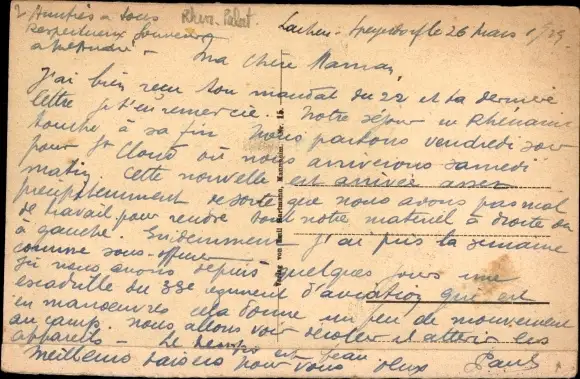 2. Amitiés à tous
Respectueux Souvenirs
à
Rhein. Palat.
Lachen-Speyerdorf le 26 mars
Ma chère Maman,
J'ai bien reçu ton mandat du 22 et ta dernière
lettre je t'en remercie. Notre séjour en Rhénanie
touche à sa fin. Nous partons vendredi soir
pour St Cloud où nous arriverons samedi
matin. Cette nouvelle est arrivée assez
précipitamment de sorte que nous avons pas mal
de travail pour rendre tout notre matériel à droite ou
à gauche. Evidemment j'ai pris la semaine
comme sous-officier
Ici nous avons depuis quelques jours une
escadrille du 33e régiment d'aviation qui est
en manoeuvres cela donne un peu de mouvement
au camp. nous allons voir décoller et atterrir les
appareils - Le temps est beau
Meilleurs baisers pour vous deux Paul
Verlag von Emil Hartmann, Mannheim.